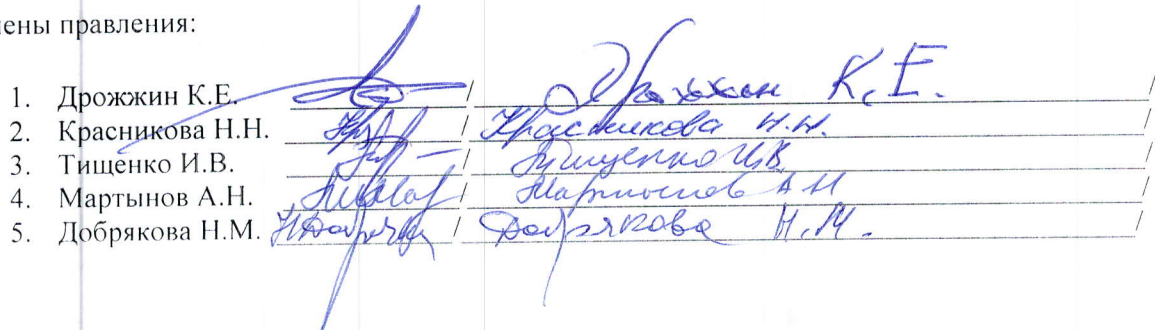 лены правления:
1. Дрожжин К.Е. / Дрожжин К.Е. /
2. Красникова Н.Н. / Красникова Н.Н. /
3. Тищенко И.В. / Тищенко И.В. /
4. Мартынов А.Н. / Мартынов А Н /
5. Добрякова Н.М. / Добрякова Н.М. /